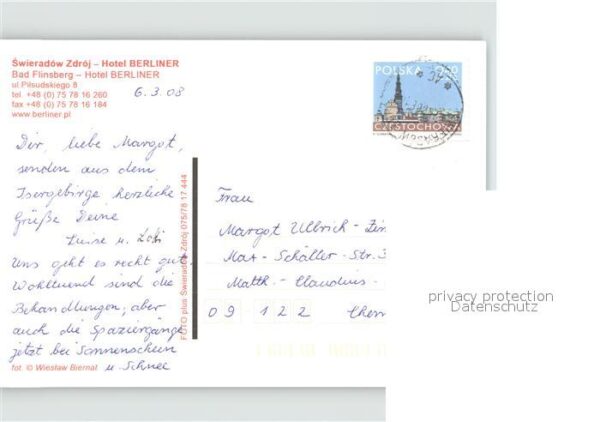 Świeradów Zdrój – Hotel BERLINER
Bad Flinsberg – Hotel BERLINER
ul Piłsudskiego 8
tel. +48 (0) 75 78 16 260
fax +48 (0) 75 78 16 184
www.berliner.pl
6.3.08
POLSKA
CZĘSTOCHOWA
Dir, liebe Margot,
senden aus dem
Isergebirge herzliche
Grüße Deine
Luise u.
Uns geht es recht gut.
Wohltuend sind die
Behandlungen, aber
auch die Spaziergänge
jetzt bei Sonnenschein
u. Schnee
fot. © Wiesław Biernat
FOTO plus Świeradów Zdrój 075/78 17 444
Frau
Margot Ullrich-
Max-Schäller-Str.
Matth.-Claudius-
09 122 Chem
privacy protection
Datenschutz